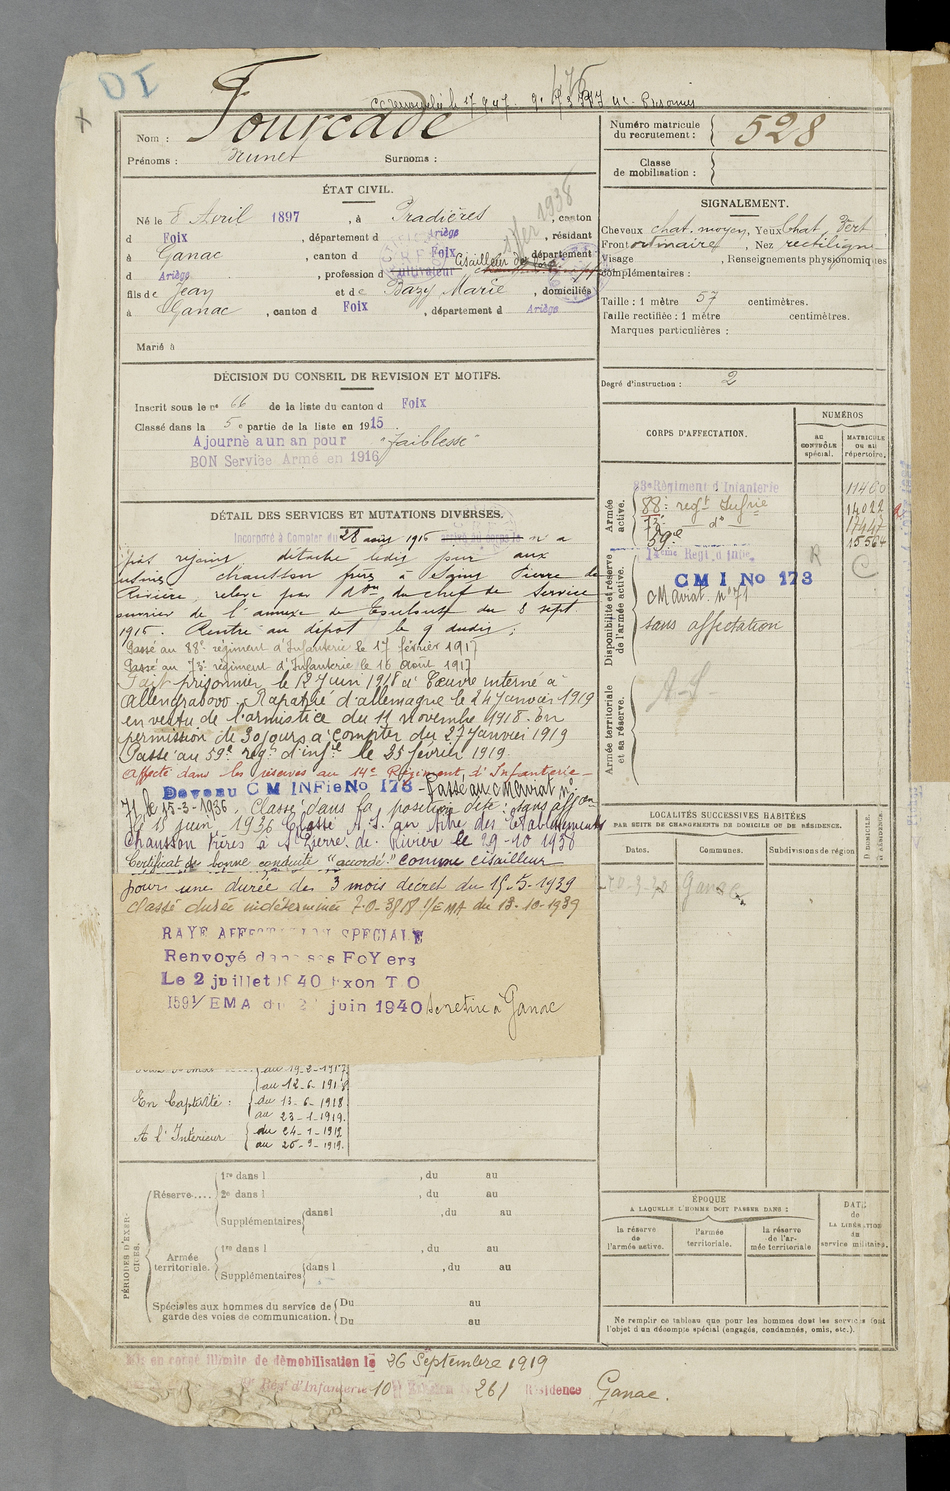 Nom : Fourcade
Numéro matricule du recrutement : 528
Prénoms : Surnoms :
Classe de mobilisation :
ÉTAT CIVIL.
Né le 8 Avril 1897, à Pradières, canton
d Foix, département d Ariège, résidant
à Ganac, canton d Foix, département
d Ariège, profession d cultivateur Cisailleur
fils de Jean et de Bazy Marie, domiciliés
à Ganac, canton d Foix, département d Ariège
Marié à
SIGNALEMENT.
Cheveux chat. moyen, Yeux chat. vert
Front ordinaire, Nez rectiligne
Visage , Renseignements physionomiques
complémentaires :
Taille : 1 mètre 57 centimètres.
Taille rectifiée : 1 mètre centimètres.
Marques particulières :
Degré d'instruction : 2
DÉCISION DU CONSEIL DE REVISION ET MOTIFS.
Inscrit sous le no 66 de la liste du canton d Foix
Classé dans la 5e partie de la liste en 1915
Ajourné a un an pour "faiblesse"
BON Service Armé en 1916
CORPS D'AFFECTATION.
NUMÉROS
AU CONTRÔLE spécial.
MATRICULE ou au répertoire.
Armée active.
83e Régiment d'Infanterie 11460
88e regt Infrie 14022
73e do 17947
59e 15564
Disponibilité et réserve de l'armée active.
14eme Regt d'Infie
CMI No 173
CMaviat. no 71
sans affectation
Armée territoriale et sa réserve.
A-S-
DÉTAIL DES SERVICES ET MUTATIONS DIVERSES.
Incorporé à Compter du 28 août 1916 arrivé au corps le n'a
pas rejoint, détaché ledit jour aux
usines chausson frères à St Pierre de
Rivière, relevé par don du chef de service
ouvrier de l'annexe de Toulouse du 8 sept
1916. Rentré au dépot le 9 dudit;
Passé au 88e régiment d'Infanterie le 17 février 1917
Passé au 73e régiment d'Infanterie le 16 Août 1917
Fait prisonnier le 12 Juin 1918 à Coeuvre interné à
Rapatrié d'allemagne le 24 Janvier 1919
en vertu de l'armistice du 11 novembre 1918. En
permission de 30 jours à compter du 27 Janvier 1919
Passé au 59e regt d'infie le 25 février 1919.
Affecté dans les réserves au 14e Régiment d'Infanterie -
Devenu CM INFie No 173 - Passé au CMaviat no
71 le 15-3-1936. Classé dans la position dite : sans affon
le 15 juin 1936 Classé A.S. au titre des Etablissements
Chausson Frères à St Pierre de Rivière le 29-10 1938
Certificat de bonne conduite "accordé" comme cisailleur
pour une durée de 3 mois décret du 15-5-1939
Classé durée indéterminée 1/EMA du 13-10-1939
RAYE AFFECTATION SPECIALE
Renvoyé dans ses FoYers
Le 2 juillet 1940 Exon T O
1591/EMA du juin 1940 Se retire à Ganac
au 19-2-1917
au 12-6-1918
En Captivité : du 13-6-1918
au 23-1-1919.
A l'Intérieur du 24-1-1919
au 26-9-1919.
LOCALITÉS SUCCESSIVES HABITÉES
PAR SUITE DE CHANGEMENTS DE DOMICILE OU DE RÉSIDENCE.
Dates. Communes. Subdivisions de région D. DOMICILE. R. RÉSIDENCE.
Ganac
PÉRIODES D'EXERCICES.
Réserve....
1re dans l , du au
2e dans l , du au
Supplémentaires dans l , du au
Armée territoriale.
1re dans l , du au
Supplémentaires dans l , du au
Spéciales aux hommes du service de garde des voies de communication.
Du au
Du au
ÉPOQUE
A LAQUELLE L'HOMME DOIT PASSER DANS :
la réserve de l'armée active.
l'armée territoriale.
la réserve de l'armée territoriale
DATE de LA LIBÉRATION du service militaire.
Ne remplir ce tableau que pour les hommes dont les services font
l'objet d'un décompte spécial (engagés, condamnés, omis, etc.).
Mis en congé illimité de démobilisation le 26 Septembre 1919
Régt d'Infanterie 10e 261 Résidence Ganac.